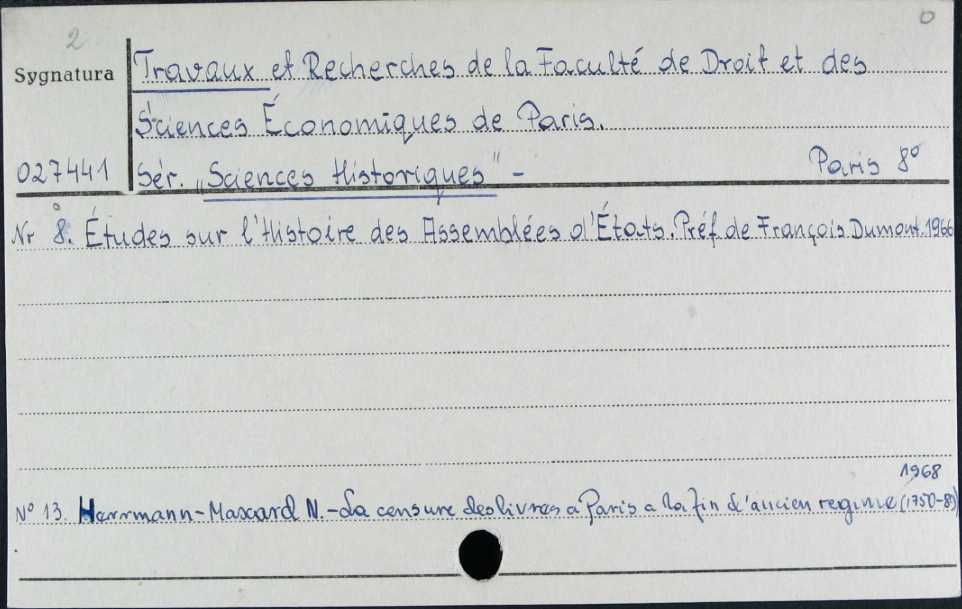 2
0
Sygnatura
Travaux et Recherches de la Faculté de Droit et des
Sciences Économiques de Paris.
027441
Sér. „Sciences Historiques" -
Paris 8°
Nr 8. Études sur l'Histoire des Assemblées d'États. Préf. de François Dumont. 1966
1968
N° 13. Herrmann-Mascard N. - La censure des livres a Paris a la fin d'ancien regime (1750-89)